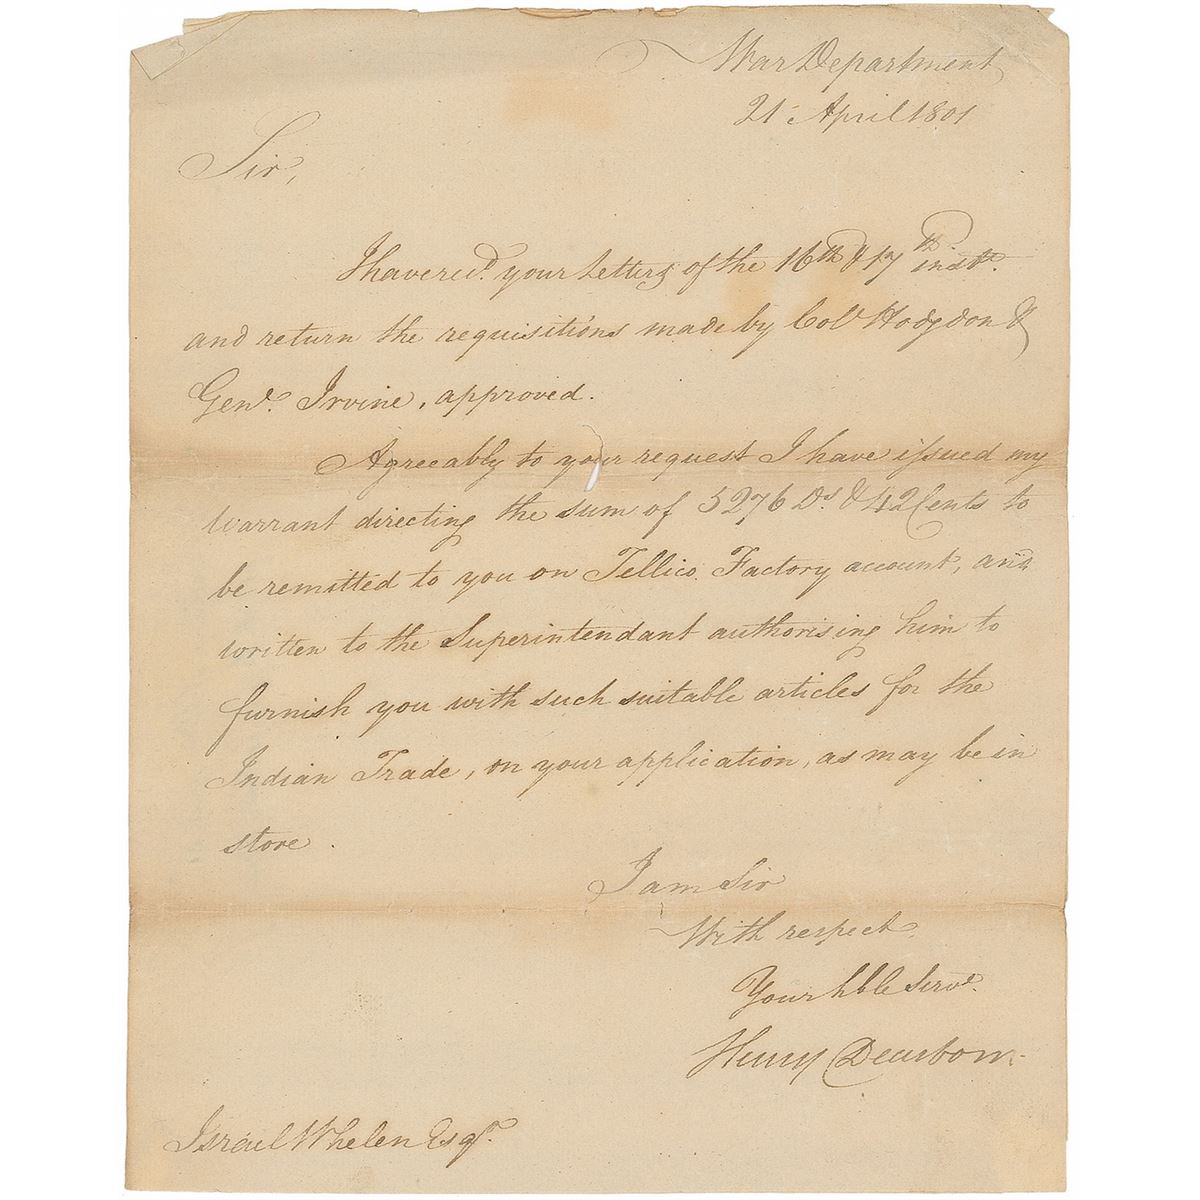 War Department
21 April 1801
Sir,
I have recd. your Letters of the 16th & 17th inste.
and return the requisitions made by Colo Hodgdon &
Genl. Irvine, approved.
Agreeably to your request I have issued my
warrant directing the sum of 5276 Ds. & 42 Cents to
be remitted to you on Tellico Factory account, and
written to the Superintendant authorising him to
furnish you with such suitable articles for the
Indian Trade, on your application, as may be in
store.
I am Sir
With respect
Your hble Servt.
Henry Dearborn
Israel Whelen Esqr.